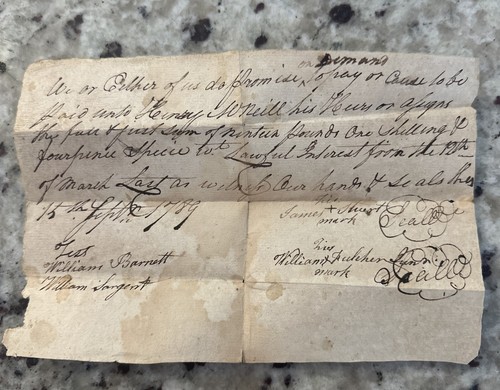 on Demand
We or Either of us do Promise ^ to pay or Cause to be
Paid unto Henry McNeill his Heirs or assigns
the full & just Sum of ninteen Pounds One Shilling &
fourpence Specie wt. Lawful Interest from the 12th
of Marsh Last as witness Our hands & Seals this
15th Septr. 1789
his
James + Stuart Seal
mark
Test
William Barnett
William Sargent
his
William + Fulcher
mark
Seal